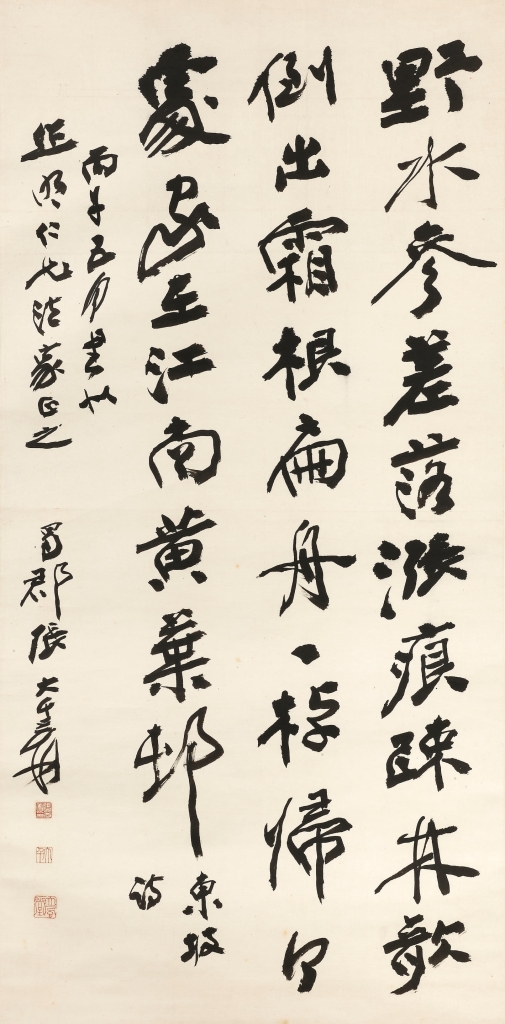 野水參差落漲痕疎林欹
倒出霜根扁舟一棹歸何
處家在江南黃葉邨
東坡
詩
丙午五月書似
明仁兄法家正之
蜀郡張大千爰